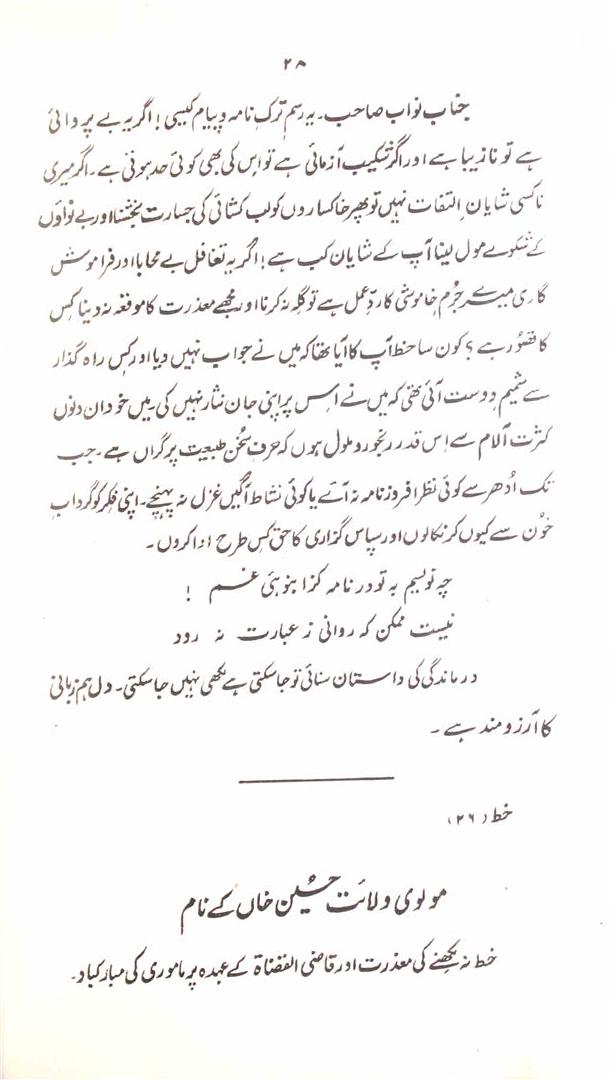 ۲۸
جناب نواب صاحب۔ یہ رسمِ ترکِ نامہ و پیام کیسی! اگر یہ بے پروائی
ہے تو نازیبا ہے اور اگر شکیب آزمائی ہے تو اس کی بھی کوئی حد ہوتی ہے۔ اگر میری
ناکسی شایانِ التفات نہیں تو پھر خاکساروں کو لب کشائی کی جسارت بخشنا اور بے نواؤں
کے شکوے مول لینا آپ کے شایان کب ہے! اگر یہ تغافل بے محابا اور فراموش
گاری میرے جُرمِ خاموشی کا ردِّ عمل ہے تو گلہ نہ کرنا اور مجھے معذرت کا موقعہ نہ دینا کس
کا قصُور ہے؟ کون سا خط آپ کا آیا تھا کہ میں نے جواب نہیں دیا اور کس راہ گذار
سے شمیمِ دوست آئی تھی کہ میں نے اس پر اپنی جان نثار نہیں کی۔ میں خود ان دنوں
کثرت آلام سے اس قدر رنجور و ملول ہوں کہ حرفِ سُخن طبیعت پر گراں ہے۔ جب
تک اُدھر سے کوئی نظر افروز نامہ نہ آئے یا کوئی نشاط آگیں غزل نہ پہنچے۔ اپنی فکر کو گرداب
خوُن سے کیوں کر نکالوں اور سپاس گزاری کا حق کس طرح ادا کروں۔
چہ نویسم بہ تو در نامہ کز انبوہئی غم !
نیست ممکن کہ روانی ز عبارت نہ رود
درماندگی کی داستان سنائی تو جا سکتی ہے لکھی نہیں جا سکتی۔ دل ہم زبانی
کا آرزو مند ہے۔
خط (۲۶)
مولوی ولائت حسُین خاں کے نام
خط نہ لکھنے کی معذرت اور قاضی القضاۃ کے عہدہ پر ماموری کی مبارکباد۔